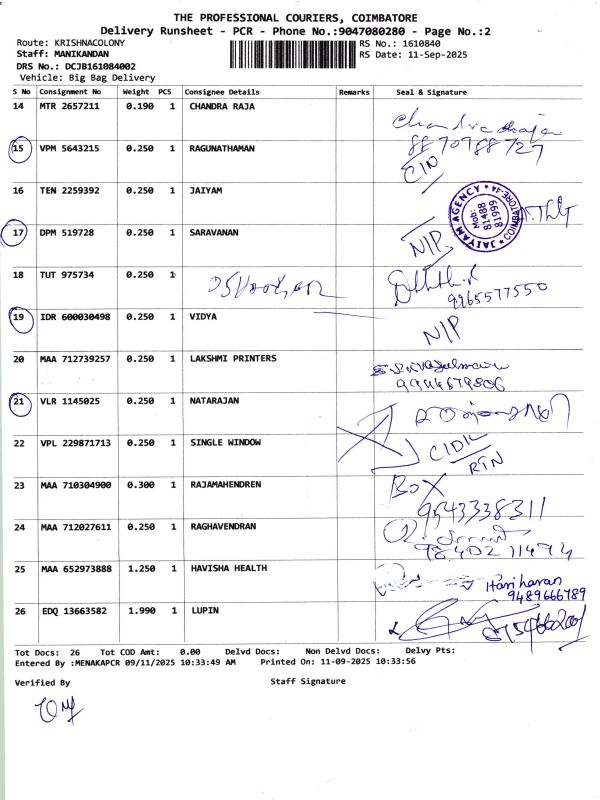 THE PROFESSIONAL COURIERS, COIMBATORE
Delivery Runsheet - PCR - Phone No.:9047080280 - Page No.:2
Route: KRISHNACOLONY RS No.: 1610840
Staff: MANIKANDAN RS Date: 11-Sep-2025
DRS No.: DCJB161084002
Vehicle: Big Bag Delivery
S No Consignment No Weight PCS Consignee Details Remarks Seal & Signature
14 MTR 2657211 0.190 1 CHANDRA RAJA
8870788727
15 VPM 5643215 0.250 1 RAGUNATHAMAN
16 TEN 2259392 0.250 1 JAIYAM
JAIYAM AGENCY COIMBATORE-44 Mob: 81488 81999
17 DPM 519728 0.250 1 SARAVANAN NIP
18 TUT 975734 0.250 1
9965577550
19 IDR 600030498 0.250 1 VIDYA NIP
20 MAA 712739257 0.250 1 LAKSHMI PRINTERS
21 VLR 1145025 0.250 1 NATARAJAN
22 VPL 229871713 0.250 1 SINGLE WINDOW
RTN
23 MAA 710304900 0.300 1 RAJAMAHENDREN BOX
9543338311
24 MAA 712027611 0.250 1 RAGHAVENDRAN
25 MAA 652973888 1.250 1 HAVISHA HEALTH Hariharan
9489666789
26 EDQ 13663582 1.990 1 LUPIN
Tot Docs: 26 Tot COD Amt: 0.00 Delvd Docs: Non Delvd Docs: Delvy Pts:
Entered By :MENAKAPCR 09/11/2025 10:33:49 AM Printed On: 11-09-2025 10:33:56
Verified By Staff Signature